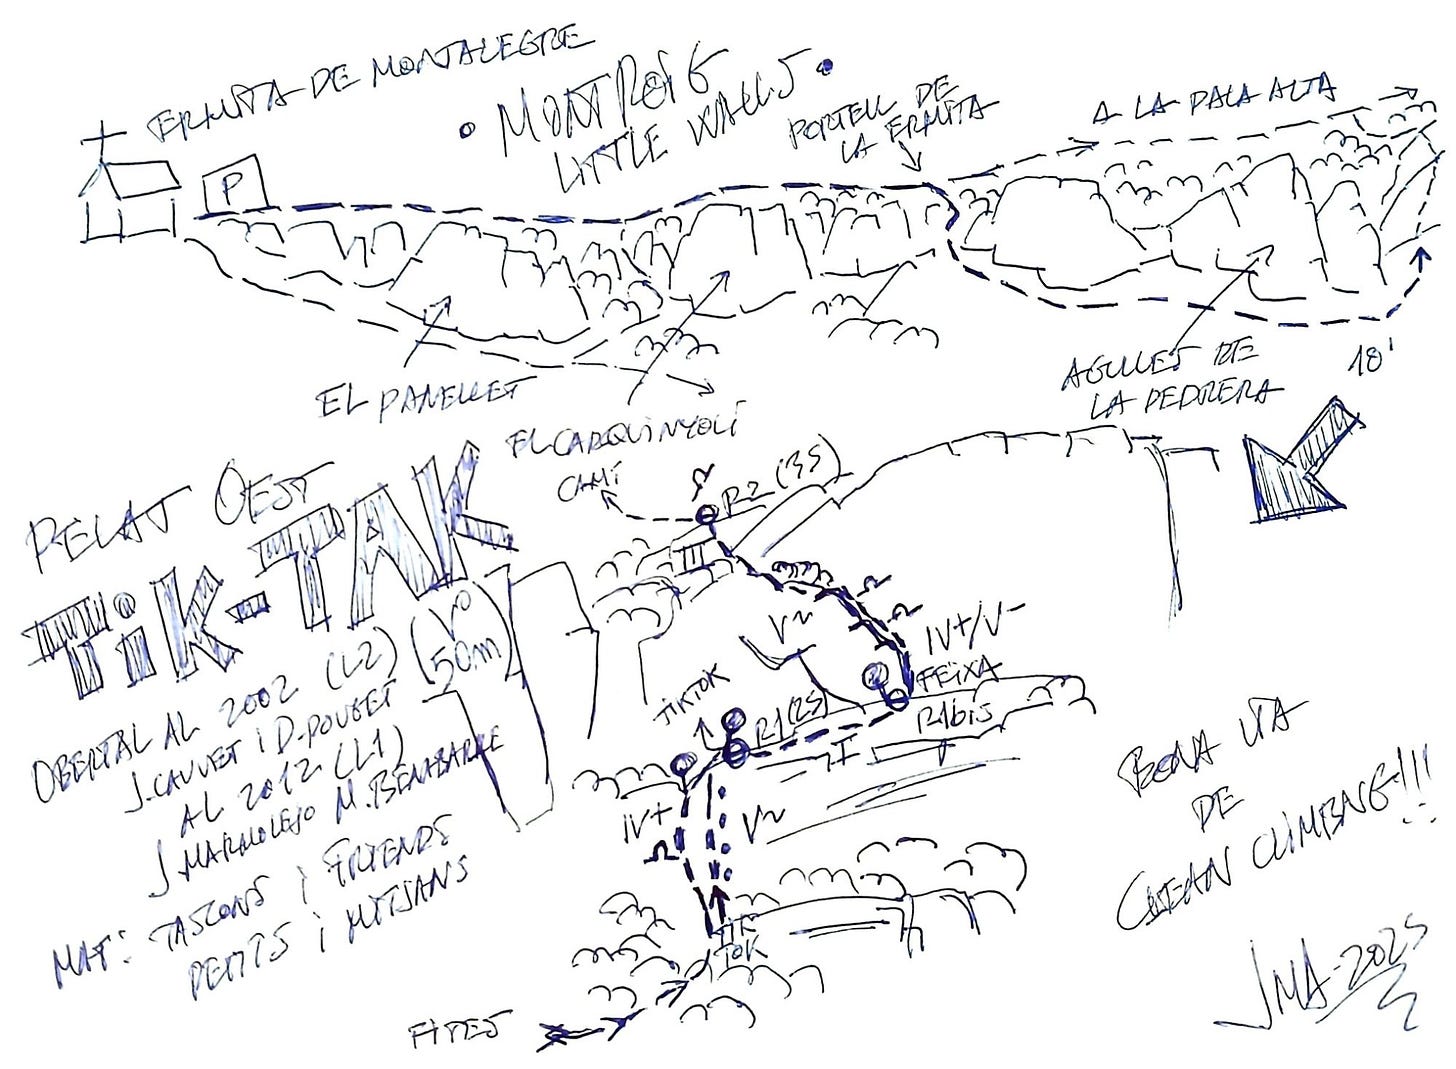 ERMITA DE MONTALEGRE
• MONTROiG
LITTLE WALLS •
PORTELL DE
LA ERMITA
A LA PALA ALTA
P
EL PANELLET
EL CARQUiNYOLi
AGULLES DE
LA PEDRERA
10'
CAMÍ
R2 (3S)
PELAT OEST
TiK-TAK
(Vº
50m)
OBERTA AL 2002 (L2)
J.CAUVET i D.POUGET
AL 2012 (L1)
J MARMOLEJO M.BENABARRE
MAT: TASCONS i FRIENDS
PETITS i MITJANS
III
V~
IV+/V-
FEiXA
R1bis
TiKTOK
R1(2S)
I
IV+
V~
TIK
TOK
FITES
BONA VIA
DE
CLEAN CLIMBING!!!
JMA-2025